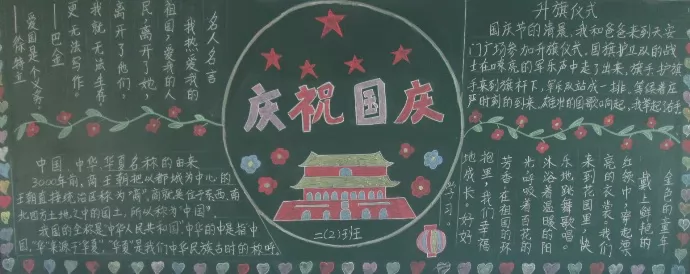 名人名言
我热爱我的
祖国,爱我的人
民,离开了她,
离开了他们,
我就无法生存,
更无法写作。
——巴金
爱国是个义务,
——徐特立
中国、中华、华夏名称的由来
3000年前,商王朝把以都城为中心的
王朝直接统治区称为“商”,商就是位于东西南
北四方土地之中的国土,所以称为“中国”。
我国的全称是中华人民共和国,中华的中是指中
国,“华”来源于华夏,“华夏”是我们中华民族古时的称呼。
庆祝国庆
二(2)班
升旗仪式
国庆节的清晨,我和爸爸来到天安
门广场参加升旗仪式,国旗护卫队的战
士在嘹亮的军乐声中走了出来,旗手护旗
手来到旗杆下,军乐队站成一排,等候着庄
严时刻的到来,雄壮的国歌响起,我举起
金色的童年
戴上鲜艳的
红领巾,穿起漂
亮的衣裳,我们
来到花园里,快
乐地跳舞歌唱,
沐浴着温暖的阳
光,呼吸着百花的
芳香,在祖国的怀
抱里,我们幸福
地成长,好好
学习